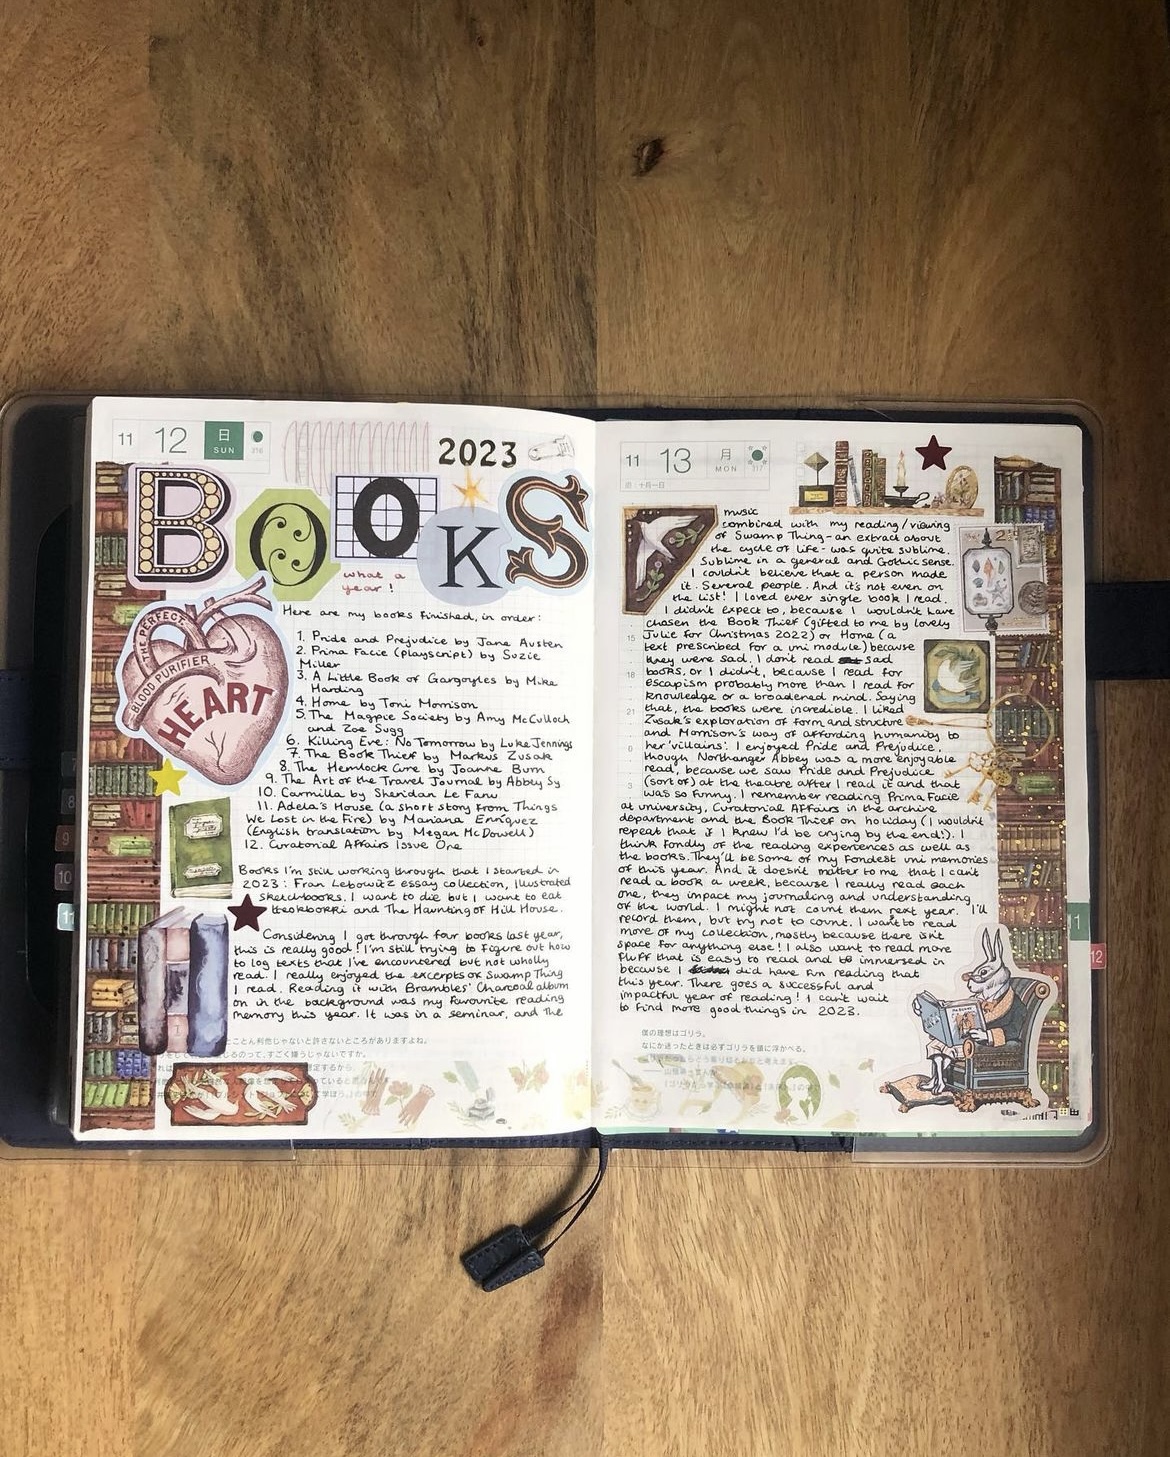 11 12 日 SUN 316
2023
BOOKS
what a
year!
THE PERFECT
BLOOD PURIFIER
HEART
Here are my books finished, in order:
1. Pride and Prejudice by Jane Austen
2. Prima Facie (playscript) by Suzie
Miller
3. A Little Book of Gargoyles by Mike
Harding
4. Home by Toni Morrison
5. The Magpie Society by Amy McCulloch
and Zoe Sugg
6. Killing Eve: No Tomorrow by Luke Jennings
7. The Book Thief by Markus Zusak
8. The Hemlock Cure by Joanne Burn
9. The Art of the Travel Journal by Abbey Sy
10. Carmilla by Sheridan Le Fanu
11. Adela's House (a short story from Things
We Lost in the Fire) by Mariana Enríquez
(English translation by Megan McDowell)
12. Curatorial Affairs Issue One
Books I'm still working through that I started in
2023: Fran Lebowitz essay collection, illustrated
sketchbooks, I want to die but I want to eat
tteokbokki and The Haunting of Hill House.
Considering I got through four books last year,
this is really good! I'm still trying to figure out how
to log texts that I've encountered but not wholly
read. I really enjoyed the excerpts of Swamp Thing
I read. Reading it with Brambles' Charcoal album
on in the background was my favourite reading
memory this year. It was in a seminar, and the
とことん利他じゃないと許さないところがありますよね。
じるのって、すごく嫌うじゃないですか。
8
9
10
11
11 13 月 MON 317
music
combined with my reading/viewing
of Swamp Thing - an extract about
the cycle of life - was quite sublime.
Sublime in a general and Gothic sense.
I couldn't believe that a person made
it. Several people. And it's not even on
the list! I loved ever single book I read.
I didn't expect to, because I wouldn't have
chosen the Book Thief (gifted to me by lovely
15 Julie for Christmas 2022) or Home (a
text prescribed for a uni module) because
they were sad. I don't read sad
18 books, or I didn't, because I read for
escapism probably more than I read for
knowledge or a broadened mind. Saying
21 that, the books were incredible. I liked
Zusak's exploration of form and structure
and Morrison's way of affording humanity to
0 her 'villains'. I enjoyed Pride and Prejudice,
though Northanger Abbey was a more enjoyable
read, because we saw Pride and Prejudice
3 (sort of) at the theatre after I read it and that
was so funny. I remember reading Prima Facie
at university, Curatorial Affairs in the archive
department and the Book Thief on holiday (I wouldn't
repeat that if I knew I'd be crying by the end!). I
think fondly of the reading experiences as well as
the books. They'll be some of my fondest uni memories
of this year. And it doesn't matter to me that I can't
read a book a week, because I really read each
one, they impact my journaling and understanding
of the world. I might not count them next year. I'll
record them, but try not to count. I want to read
more of my collection, mostly because there isn't
space for anything else! I also want to read more
fluff that is easy to read and be immersed in
because I did have fun reading that
this year. There goes a successful and
impactful year of reading! I can't wait
to find more good things in 2023.
僕の理想はゴリラ。
なにか迷ったときは必ずゴリラを頭に浮かべる。
11
12